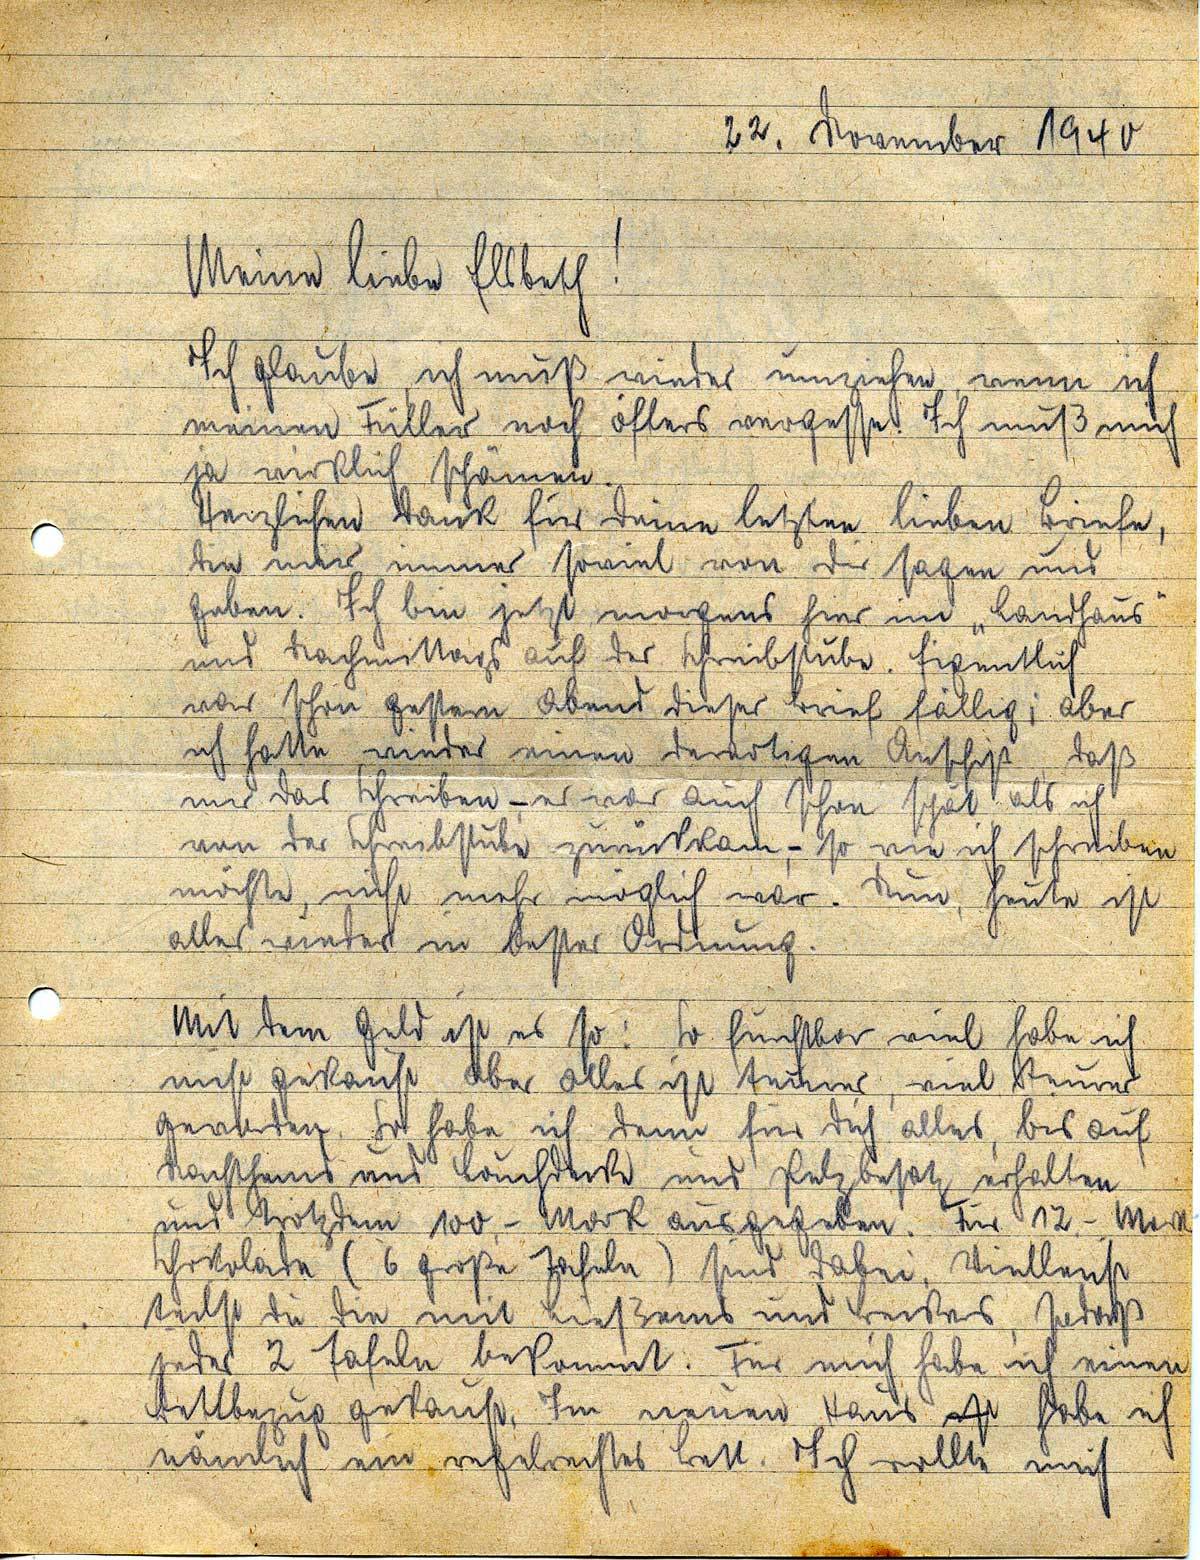 22. November 1940
Meine liebe Elsbeth!
Ich glaube, ich muß wieder umziehen, wenn ich
meinen Füller noch öfters vergesse. Ich muß mich
ja wirklich schämen.
Herzlichen Dank für Deine letzten lieben Briefe,
die mir immer soviel von Dir sagen und
geben. Ich bin jetzt morgens hier im „Landhaus"
und Nachmittags auf der Schreibstube. Eigentlich
war schon gestern Abend dieser Brief fällig; aber
ich hatte wieder einen derartigen Anschiß, daß
mir das Schreiben, - es war auch schon spät, als ich
von der Schreibstube zurückkam, - so wie ich schreiben
möchte, nicht mehr möglich war. Nun, heute ist
alles wieder in bester Ordnung.
Mit dem Geld ist es so: So furchtbar viel habe ich
nicht gekauft. Aber alles ist teurer, viel teurer
geworden. So habe ich denn für Dich alles, bis auf
Nachthemd und Couchdecke und Pelzbesatz erhalten
und trotzdem 100,- Mark ausgegeben. Für 12,- Mark
Schokolade (6 große Tafeln) sind dabei. Vielleicht
teilst du die mit und, sodaß
jeder 2 Tafeln bekommt. Für mich habe ich einen
Bettbezug gekauft. Im neuen Haus habe ich
nämlich ein regelrechtes Bett. Ich wollte mich